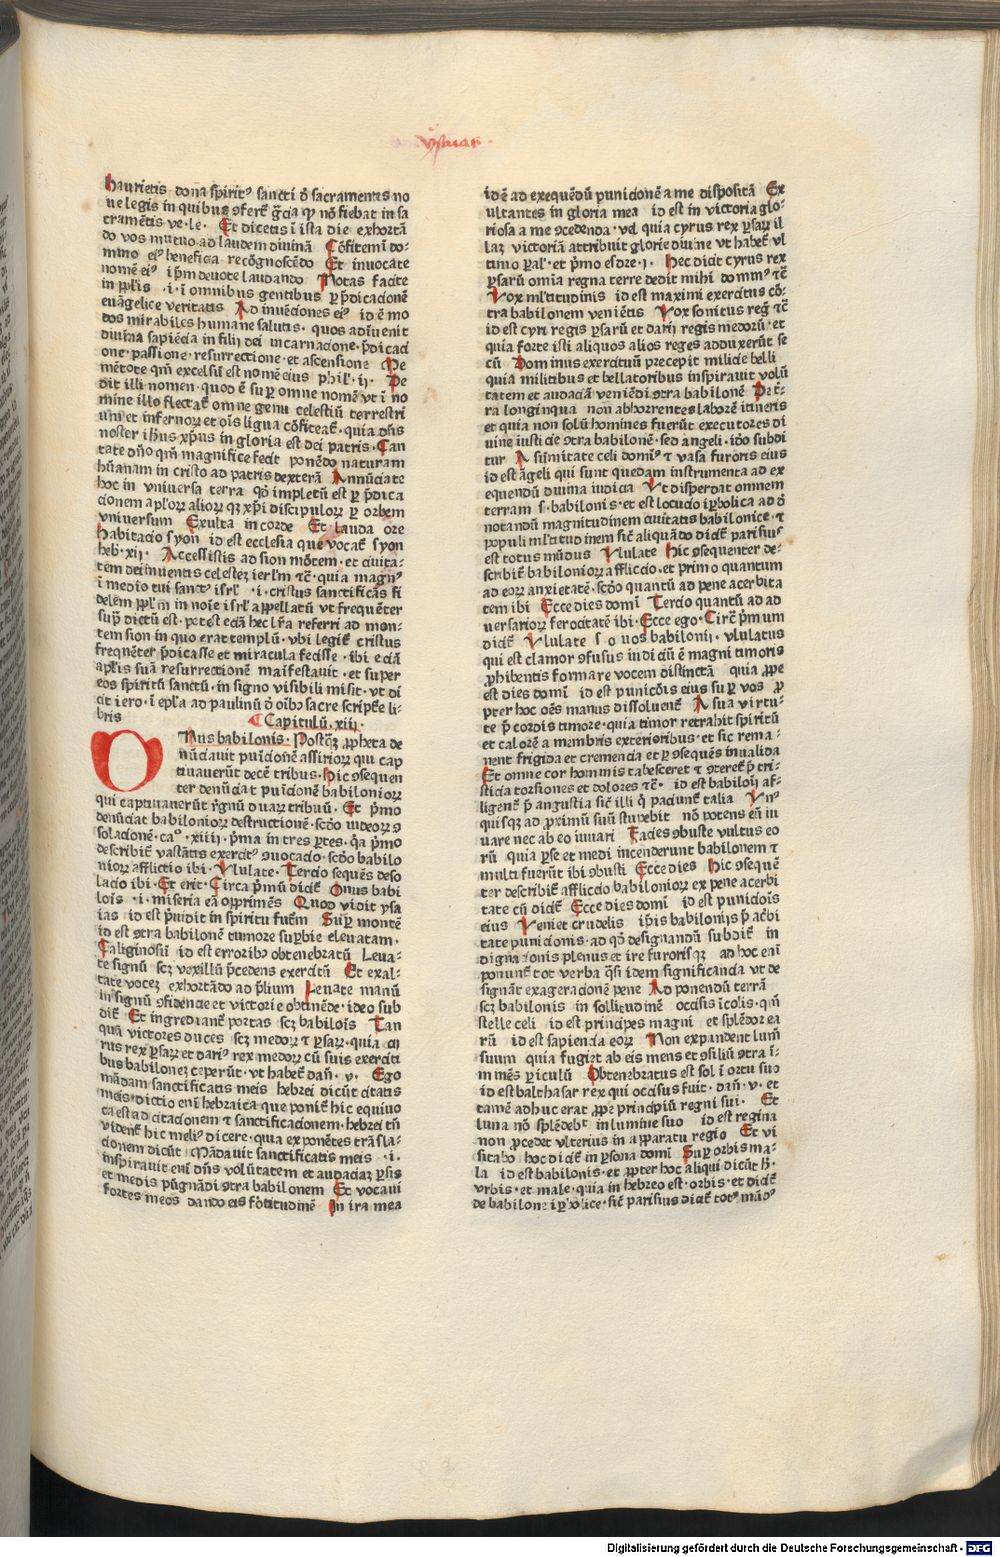 ysaias
haurietis dona spiritꝰ sancti ⁊ sacramentas no
ue legis in quibus ꝯfert̃ gr̃cia qͥ nō fiebat in sa
cramētis ve·le· Et dicetis ī ista die exhortā
do vos mutuo ad laudem diuinā Cōfitemī do-
mino eiꝰ beneficia recōgnoscēdo Et inuocate
nomē eiꝰ ip̄m deuote laudando Notas facite
in pp̄lis ·i· ī omnibus gentibus p̲ p̄dicacionē
euāgelice veritatis Ad inuēciones eiꝰ id ē mo
dos mirabiles humane salutis· quos adīuenit
diuina sapiēcia in filij dei incarnacione·p̄dicaci
one·passione·resurrectione·et ascensione Me
mētote qm̄ excelsū est nomē eius phil'·ij· De
dit illi nomen·quod ē sup̲ omne nomē vt ī no
mine illo flectat̃ omne genu celestiū terrestri
um et infernoꝝ et oīs ligua cōfiteat̃·quia dn̄s
noster ih̄us xp̄us in gloria est dei patris·Can
tate dn̄o qm̄ magnifice fecit ponēdo naturam
hūanam in cristo ad patris dexterā Annūciate
hoc in vniuersa terra qd̄ impletū est p̲ p̄dica
cionem apl'oꝝ alioꝝ qꝫ xp̄i discipuloꝝ p̲ orbem
vniuersum Exulta in corde Et lauda ore
habitacio syon id est ecclesia que vocat̃ syon
heb·xij· Accessistis ad sion mōtem·et ciuita-
tem dei inuentis celestez ier'lm̄ ⁊c̄·quia magnꝰ
ī medio tui sanctꝰ isrl' ·i· cristus sanctificās fi
delem pp̄lm̄ in noīe isrl' appellatū vt frequēter
sup̲ dictū est·potest eciā hec lr̄a referri ad mon-
tem sion in quo erat templū·vbi legit̃ cristus
frequēter p̄dicasse et miracula fecisse·ibi eciā
apl'is suā resurrectionē maīfestauit·et super
eos spiritū sanctū·in signo visibili misit·vt di
cit iero·ī epl'a ad paulinū ⁊ oībꝫ sacre script̃e li-
bris
Capitulū·xiij·
ONus babilonis·Postq̄ꝫ ꝓpheta de
nūciauit puīcionē assirioꝝ qui cap
tiuauerūt decē tribus·hic ꝯsequen
ter denūciat puīcionē babilonioꝝ
qui captiuauerūt rͤgnū duaꝝ tribuū· Et p̄mo
denūciat babilonioꝝ destructionē·scd̄o iudeoꝝ ꝯ
solacionē·caº·xiiij·p̄ma in tres p̲tes·q̄a p̄mo
describit̃ vastātis exercitꝰ ꝯuocacio·scd̄o babilo
nioꝝ afflictio ibi·Vlulate·Tercio sequēs deso
lacio ibi·Et erit·Circa p̄mū dicit̃ Onus babi
lois ·i·miseria eā opprimēs Quod vidit ysa
ias id est p̄uidit in spiritu fut̃m Sup̲ montē
id est ꝯtra babilonē tumore sup̲bie eleuatam·
Caliginosū id est erroribꝫ obtenebratū Leua-
te signū scꝫ vexillū p̄cedens exercitū Et exal-
tate vocez exhortādo ad p̄lium Leuate manū
in signū ꝯfidencie et victorie obtinēde·ideo sub
dit̃ Et ingrediant̃ portas scꝫ babilois Tan
quā victores duces scꝫ medoꝝ ⁊ p̲saꝝ·quia ci
rus rex p̲saꝝ et dariꝰ rex medoꝝ cū suis exerciti
bus babilonez ceperūt·vt habet̃ dan̄·v· Ego
mādam sanctificatis meis hebrei dicūt citatis
meis·dictio enī hebraica que ponit̃ hic equiuo
ca est ad citacionem ⁊ sanctificacionem·hebrei tn̄
vident̃ hic meliꝰ dicere·quia exponētes trāsla-
cionem dicūt Mādauit sanctificatis meis ·i·
inspirauit enī dn̄s volūtatem et audaciaz p̲sis
et medis pūgnādi ꝯtra babilonem Et vocaui
fortes meos dando eis fortitudinē In ira mea
id ē ad exequēdū punicionē a me dispositā Ex
ultantes in gloria mea id est in victoria glo-
riosa a me ꝯcedenda·vel quia cyrus rex p̲saꝝ il
laꝫ victoriā attribuit glorie diuine vt habet̃ vl
timo p̲al'·et p̄mo esdre·j· Hec dicit cyrus rex
p̲saꝝ omīa regna terre dedit mihi dominꝰ ⁊c̄
Vox ml'titudinis id est maximi exercitus cō-
tra babilonem veniētis Vox sonitus reg̃ ⁊c̄
id est cyri regis p̲saꝝ et darij regis medorū·et
quia forte isti aliquos alios reges adduxerūt se
cū Dominus exercituū precepit milicie belli
quia militibus et bellatoribus inspirauit volū
tatem et audaciā veniēdi ꝯtra babilonē De t̃-
ra longinqua non abhorrentes laborē itineris
et quia non solū homines fuerūt executores di
uine iusticie ꝯtra babilonē·sed angeli·ido subdi
tur A sūmitate celi domīꝰ ⁊ vasa furoris eius
id est āgeli qui sunt quedam instrumenta ad ex
equendū diuina iudicia Vt disperdat omnem
terram s·babilonis·et est locucio ip̲bolica ad ⁊
notandū magnitudinem ciuitatis babilonice·⁊
populi ml'titudinem sic̄ aliquādo dicit̃ parisius
est totus mūdus Vlulate Hic ꝯsequenter de-
scribit̃ babilonioꝝ afflictio·et primo quantum
ad eoꝝ anxietatē·scd̄o quantū ad pene acerbita
tem ibi Ecce dies domī Tercio quantū ad ad
uersarioꝝ ferocitatē ibi·Ecce ego·Circͣ p̄mum
dicit̃ Vlulate s o uos babilonij·vlulatus
qui est clamor ꝯfusus indiciū ē magni timoris
ꝓhibentis formare vocem distinctā quia ꝓpe
est dies domī id est punicōis eius sup̲ vos ꝓ
pter hoc oēs manus dissoluent̃ A sua virtu-
te p̄ cordis timore·quia timor retrahit spiritū
et calorē a membris exterioribus·et sic rema-
nent frigida et cremencia et p̲ ꝯsequēs inualida
Et omne cor hominis tabescet ⁊ ꝯteret̃ p̄ tri-
sticia torsiones et dolores ⁊c̄· id est babiloij af-
ligent̃ p̄ angustia sic̄ illi q̄ paciunt̃ talia Vnꝰ
quisqꝫ ad ꝓximū suū stupebit nō potens eū iu
uare nec ab eo iuuari Facies ꝯbuste vultus eo
rū quia p̲se et medi incenderunt babilonem ⁊
multi fuerūt ibi ꝯbusti Ecce dies Hic ꝯsequē
ter describit̃ afflictio babilonioꝝ ex pene acerbi
tate cū dicit̃ Ecce dies domī id est punicōis
eius Veniet crudelis ip̄is babilonijs p̄ ac̄bi
tate punicionis·ad qd̄ designandū subdit̃ in
dignacionis plenus et ire furorisqꝫ ad hoc enī
ponunt̃ tot verba q̄si idem significancia vt de
signāt exageracionē pene Ad ponendū terrā
scꝫ babilonis in sollitudinē occisis īcolis·qm̄
stelle celi id est principes magni et splēdor ea
rū id est sapiencia eoꝝ Non expandent lum̄
suum quia fugiet ab eis mens et ꝯsiliū ꝯtra ī-
minēs p̲iculū Obtenebratus est sol ī ortu suo
id est balthasar rex qui occisus fuit·dan̄·v·et
tamē adhuc erat ꝓpe principiū regni sui· Et
luna nō splēdebit in lumine suo id est regina
non ꝓcedet vlterius in apparatu regio Et vi
sitabo hoc dicit̃ in p̲sona domī Sup̲ orbis ma-
la id est babilonis·et ꝓpter hoc aliqui dicūt h̄·
vrbis·et male·quia in hebreo est·orbis·et dicit̃
de babilone ip̲bolice·sic̄ parisius dicit̃ totꝰ mūdꝰ
Digitalisierung gefördert durch die Deutsche Forschungsgemeinschaft - DFG